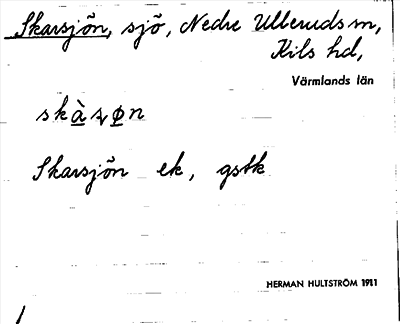 Skarsjön, sjö, Nedre Ulleruds sn,
Kils hd,
Värmlands län
Skarsjön ek, gstk
HERMAN HULTSTRÖM 1911